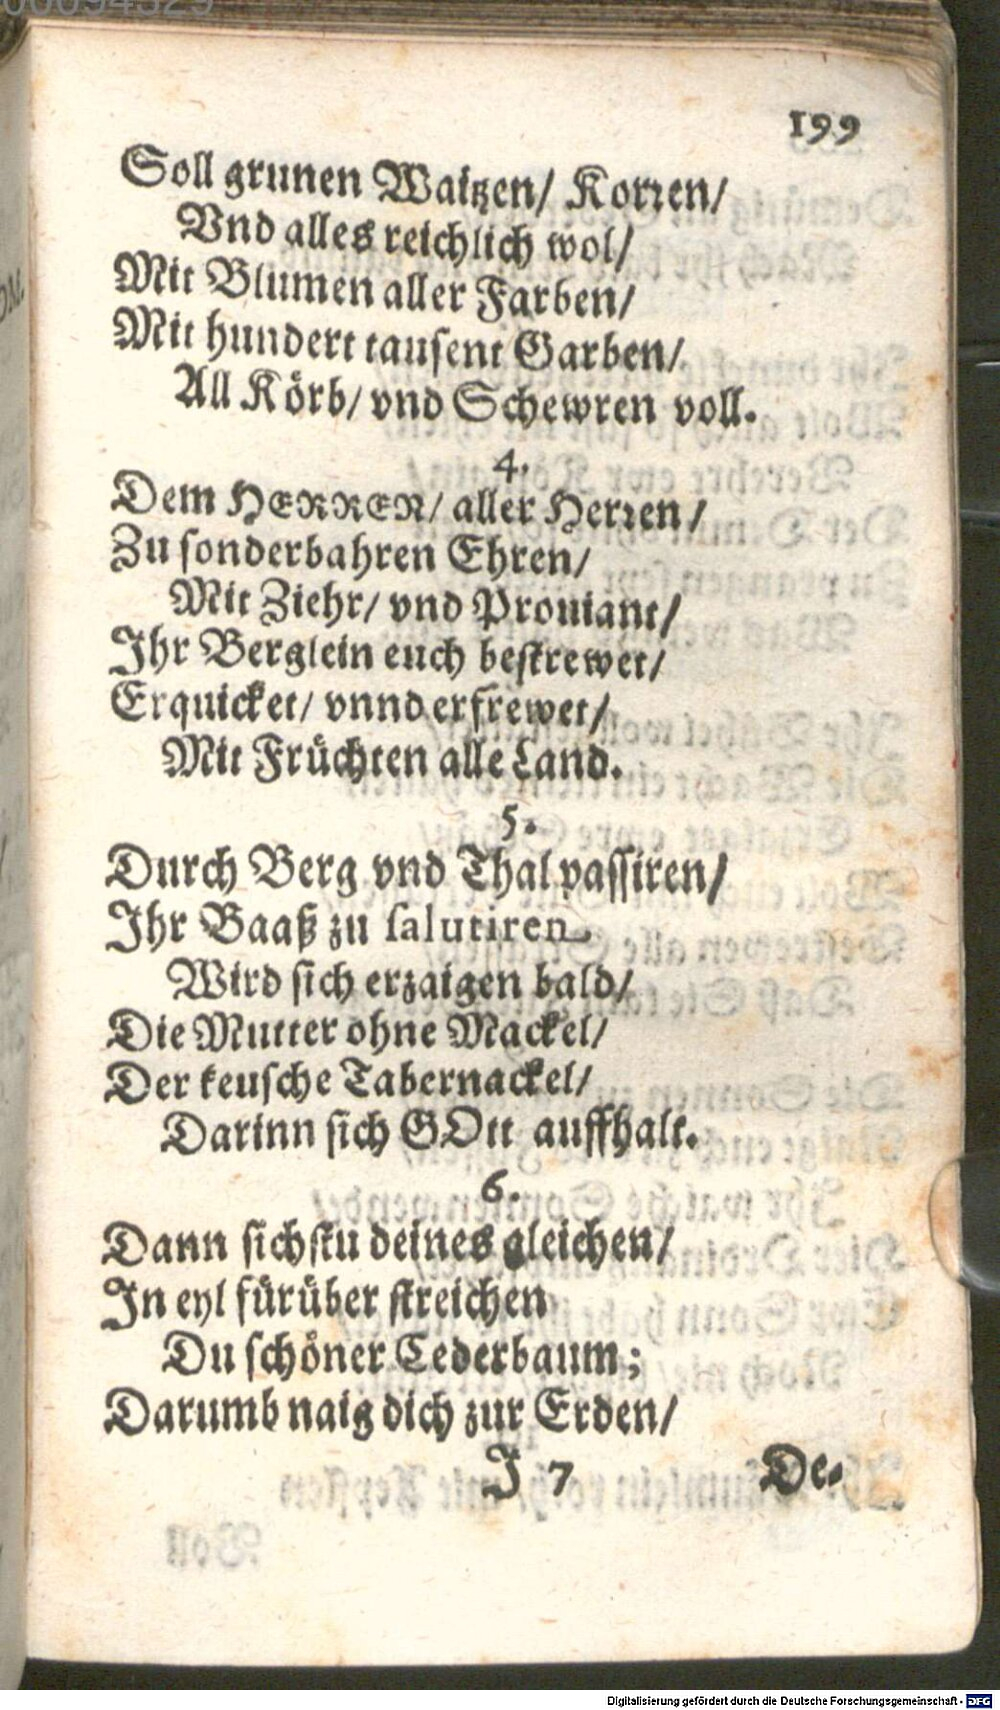 199
Soll grunen Waitzen/ Korꝛen/
Vnd alles reichlich wol/
Mit Blumen aller Farben/
Mit hundert tausent Garben/
All Körb/ vnd Schewren voll.
4.
Dem HERREN/ aller Herꝛen/
Zu sonderbahren Ehren/
Mit Ziehr/ vnd Prouiant/
Ihr Berglein euch bestrewet/
Erquicket/ vnnd erfrewet/
Mit Früchten alle Land.
5.
Durch Berg vnd Thal passiren/
Ihr Baaß zu salutiren
Wird sich erzaigen bald/
Die Mutter ohne Mackel/
Der keusche Tabernackel/
Darinn sich GOtt auffhalt.
6.
Dann sichstu deines gleichen/
In eyl fürüber streichen
Du schöner Cederbaum;
Darumb naig dich zur Erden/
J 7 De-
Digitalisierung gefördert durch die Deutsche Forschungsgemeinschaft - DFG